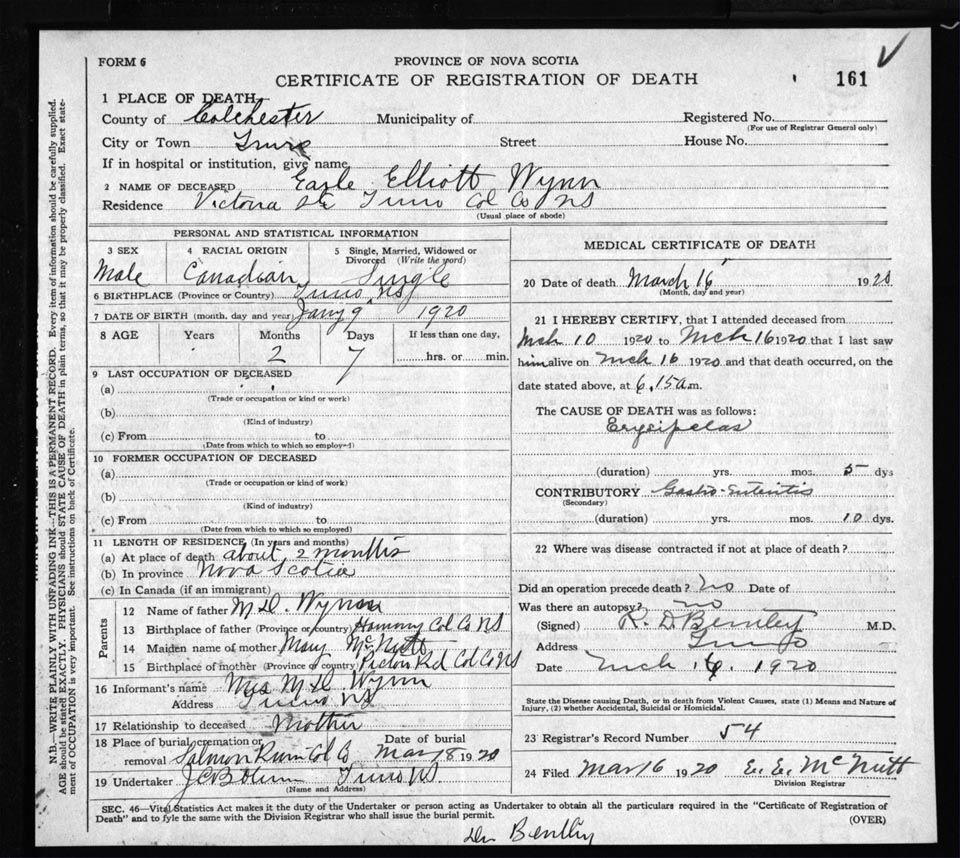 FORM 6
PROVINCE OF NOVA SCOTIA
CERTIFICATE OF REGISTRATION OF DEATH
161
1 PLACE OF DEATH
County of Colchester Municipality of Registered No.
(For use of Registrar General only)
City or Town Truro Street House No.
If in hospital or institution, give name
2 NAME OF DECEASED Earle Elliott Wynn
Residence Victoria Truro Col Co NS
(Usual place of abode)
PERSONAL AND STATISTICAL INFORMATION
3 SEX 4 RACIAL ORIGIN 5 Single, Married, Widowed or
Divorced (Write the word)
Male Canadian Single
6 BIRTHPLACE (Province or Country) Truro NS
7 DATE OF BIRTH (month, day and year) Jany 9 1920
8 AGE Years Months Days If less than one day,
2 7 hrs. or min.
9 LAST OCCUPATION OF DECEASED
(a)
(Trade or occupation or kind or work)
(b)
(Kind of industry)
(c) From to
(Date from which to which so employed)
10 FORMER OCCUPATION OF DECEASED
(a)
(Trade or occupation or kind of work)
(b)
(Kind of industry)
(c) From to
(Date from which to which so employed)
11 LENGTH OF RESIDENCE (In years and months)
(a) At place of death about 2 months
(b) In province Nova Scotia
(c) In Canada (if an immigrant)
Parents
12 Name of father M D. Wynn
13 Birthplace of father (Province or country) Col Co NS
14 Maiden name of mother Mary McNutt
15 Birthplace of mother (Province or country) Pictou Rd Col Co NS
16 Informant's name Mrs M D Wynn
Address Truro NS
17 Relationship to deceased Mother
18 Place of burial, cremation or Date of burial
removal Salmon River Col Co Mar 18 1920
19 Undertaker Truro NS.
(Name and Address)
MEDICAL CERTIFICATE OF DEATH
20 Date of death March 16 1920
(Month, day and year)
21 I HEREBY CERTIFY, that I attended deceased from
Mch 10 1920 to Mch 16 1920 that I last saw
him alive on Mch 16 1920 and that death occurred, on the
date stated above, at 6.15 a.m.
The CAUSE OF DEATH was as follows:
Erysipelas
(duration) yrs. mos. 5 dys
CONTRIBUTORY Gastro-Enteritis
(Secondary)
(duration) yrs. mos. 10 dys.
22 Where was disease contracted if not at place of death?
Did an operation precede death? no Date of
Was there an autopsy? no
(Signed) R. D. Bentley M.D.
Address Truro
Date Mch 16. 1920
State the Disease causing Death, or in death from Violent Causes, state (1) Means and Nature of
Injury, (2) whether Accidental, Suicidal or Homicidal.
23 Registrar's Record Number 54
24 Filed Mar 16 1920 E. E. McNutt
Division Registrar
SEC. 46—Vital Statistics Act makes it the duty of the Undertaker or person acting as Undertaker to obtain all the particulars required in the "Certificate of Registration of
Death" and to fyle the same with the Division Registrar who shall issue the burial permit.
(OVER)
Dr Bentley
N.B.—WRITE PLAINLY WITH UNFADING INK—THIS IS A PERMANENT RECORD. Every item of information should be carefully supplied.
AGE should be stated EXACTLY. PHYSICIANS should STATE CAUSE OF DEATH in plain terms, so that it may be properly classified. Exact state-
ment of OCCUPATION is very important. See instructions on back of Certificate.